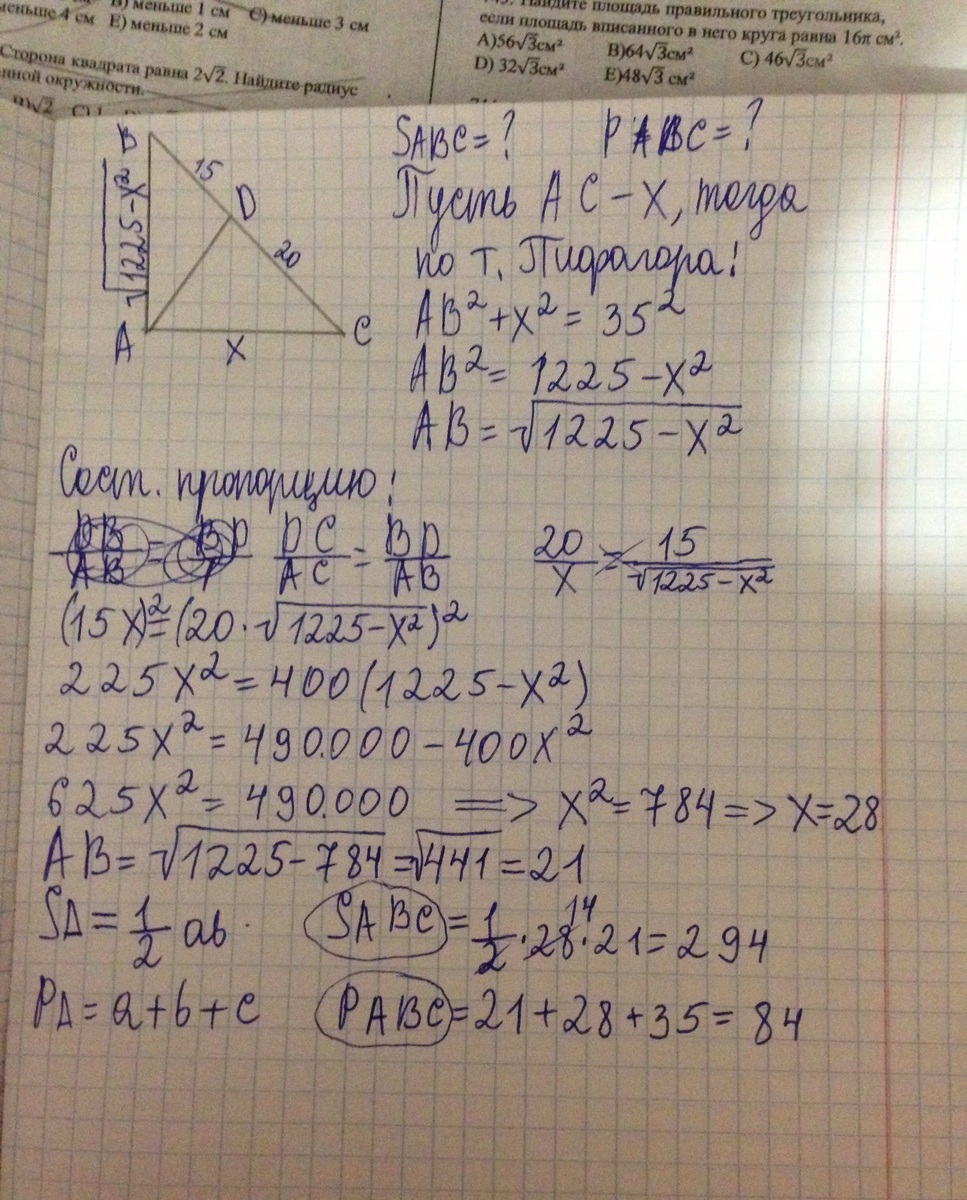 В) меньше 1 см С) меньше 3 см
меньше 4 см Е) меньше 2 см
Сторона квадрата равна 2√2. Найдите радиус
нной окружности.
В)√2
Найдите площадь правильного треугольника,
если площадь вписанного в него круга равна 16π см².
А)56√3см² В)64√3см² С) 46√3см²
D) 32√3см² Е)48√3 см²
B
15
D
20
√1225-x²
A
x
C
SABC=? PABC=?
Пусть AC-X, тогда
по т. Пифагора:
AB²+x²=35²
AB²=1225-x²
AB=√1225-x²
Сост. пропорцию:
DC/AC=BD/AB 20/x=15/√1225-x²
(15x)²=(20·√1225-x²)²
225x²=400(1225-x²)
225x²=490.000-400x²
625x²=490.000 => x²=784=>x=28
AB=√1225-784=√441=21
SΔ=1/2 ab. SABC=1/2·28·21=294
14
PΔ=a+b+c PABC=21+28+35=84